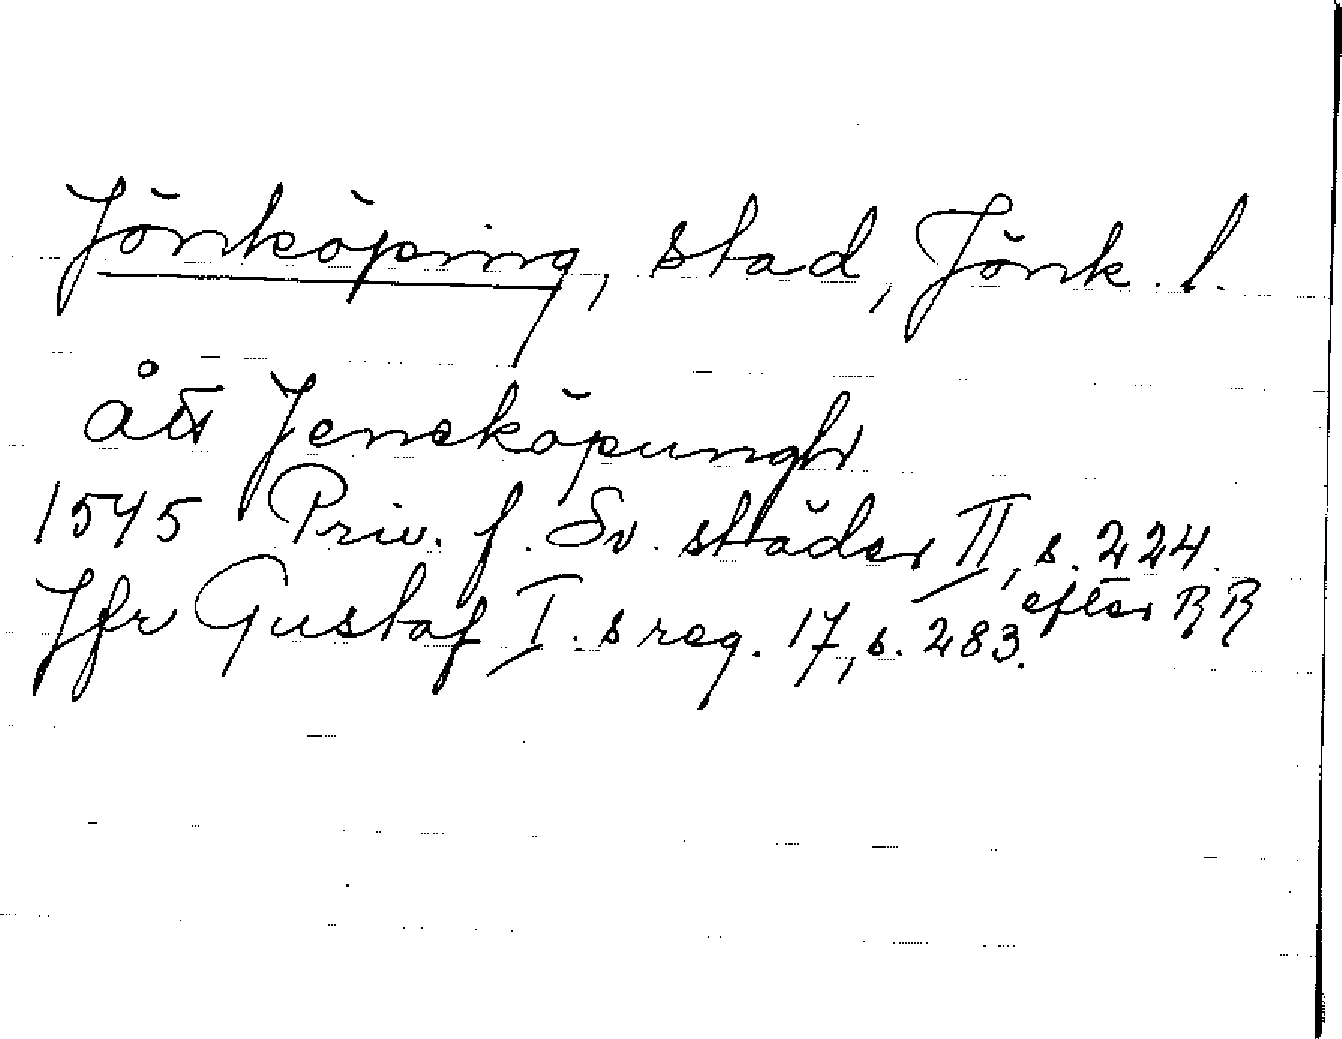 Jönköping, stad, Jönk. l.
ått Jeneköpungh
1545 Priv. f. Sv. städer II, s. 224.
efter RR
Jfr Gustaf I. s reg. 17, s. 283.